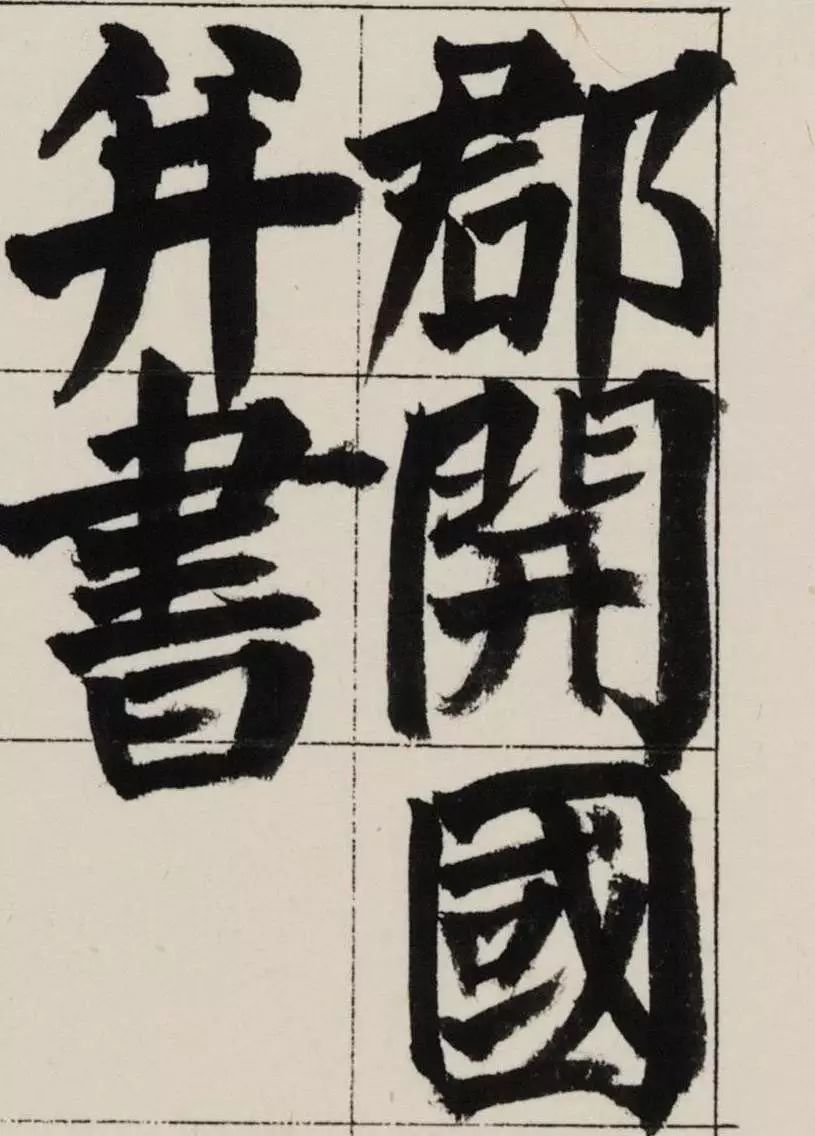 郡開國
并書